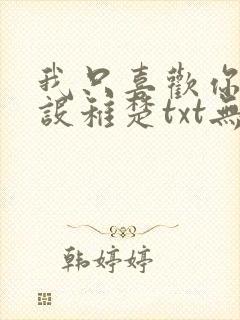 我只喜歡你
設稚楚txt無
韩婷婷